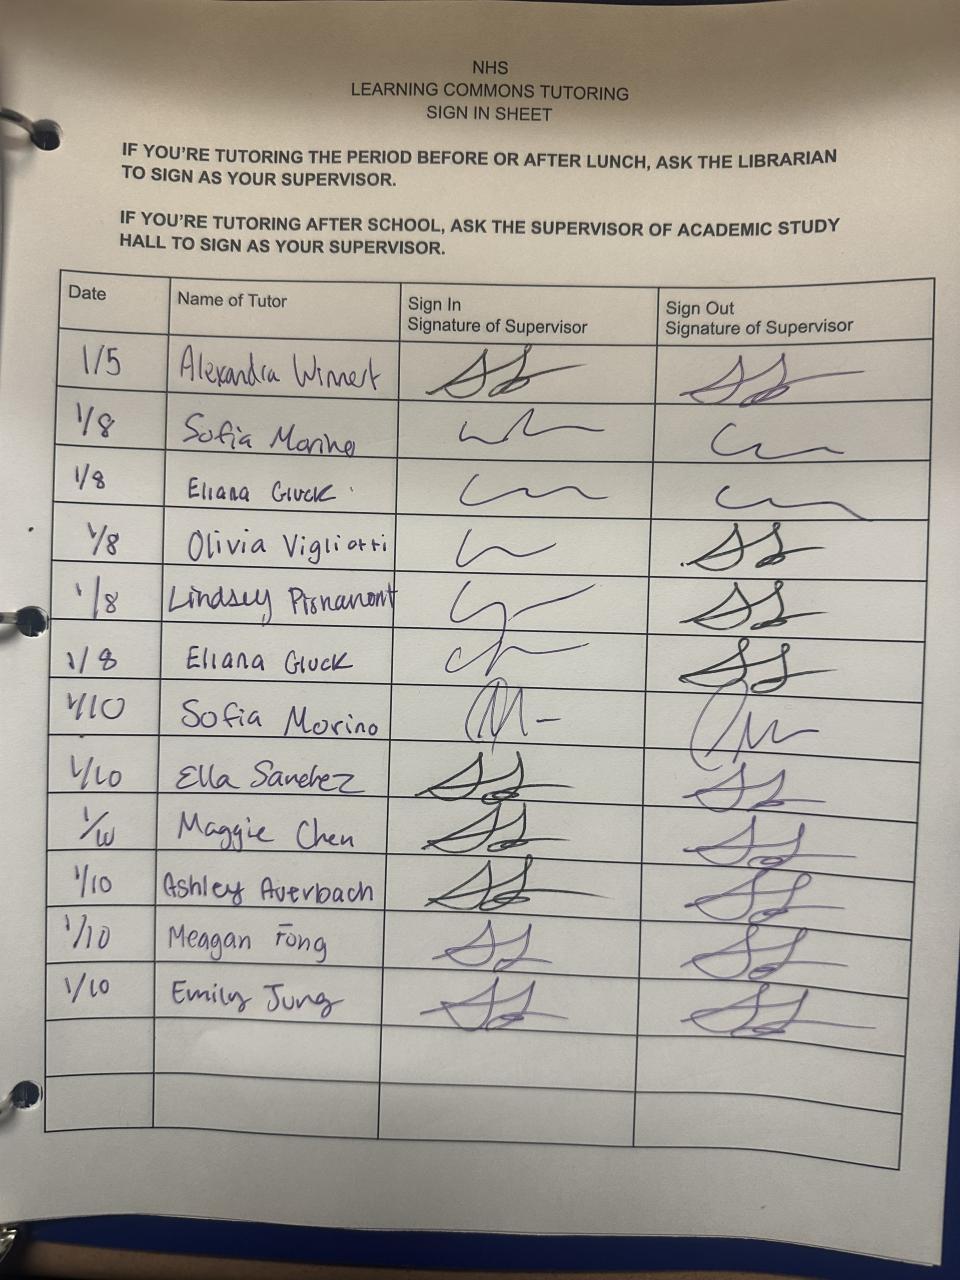 NHS
LEARNING COMMONS TUTORING
SIGN IN SHEET
IF YOU'RE TUTORING THE PERIOD BEFORE OR AFTER LUNCH, ASK THE LIBRARIAN
TO SIGN AS YOUR SUPERVISOR.
IF YOU'RE TUTORING AFTER SCHOOL, ASK THE SUPERVISOR OF ACADEMIC STUDY
HALL TO SIGN AS YOUR SUPERVISOR.
Date Name of Tutor Sign In Sign Out
Signature of Supervisor Signature of Supervisor
1/5 Alexandra Winnert
1/8 Sofia Morino
1/8 Eliana Gluck
1/8 Olivia Vigliotti
1/8 Lindsey
1/8 Eliana Gluck
1/10 Sofia Morino
1/10 Ella Sanchez
1/10 Maggie Chen
1/10 Ashley Averbach
1/10 Meagan Fong
1/10 Emily Jung